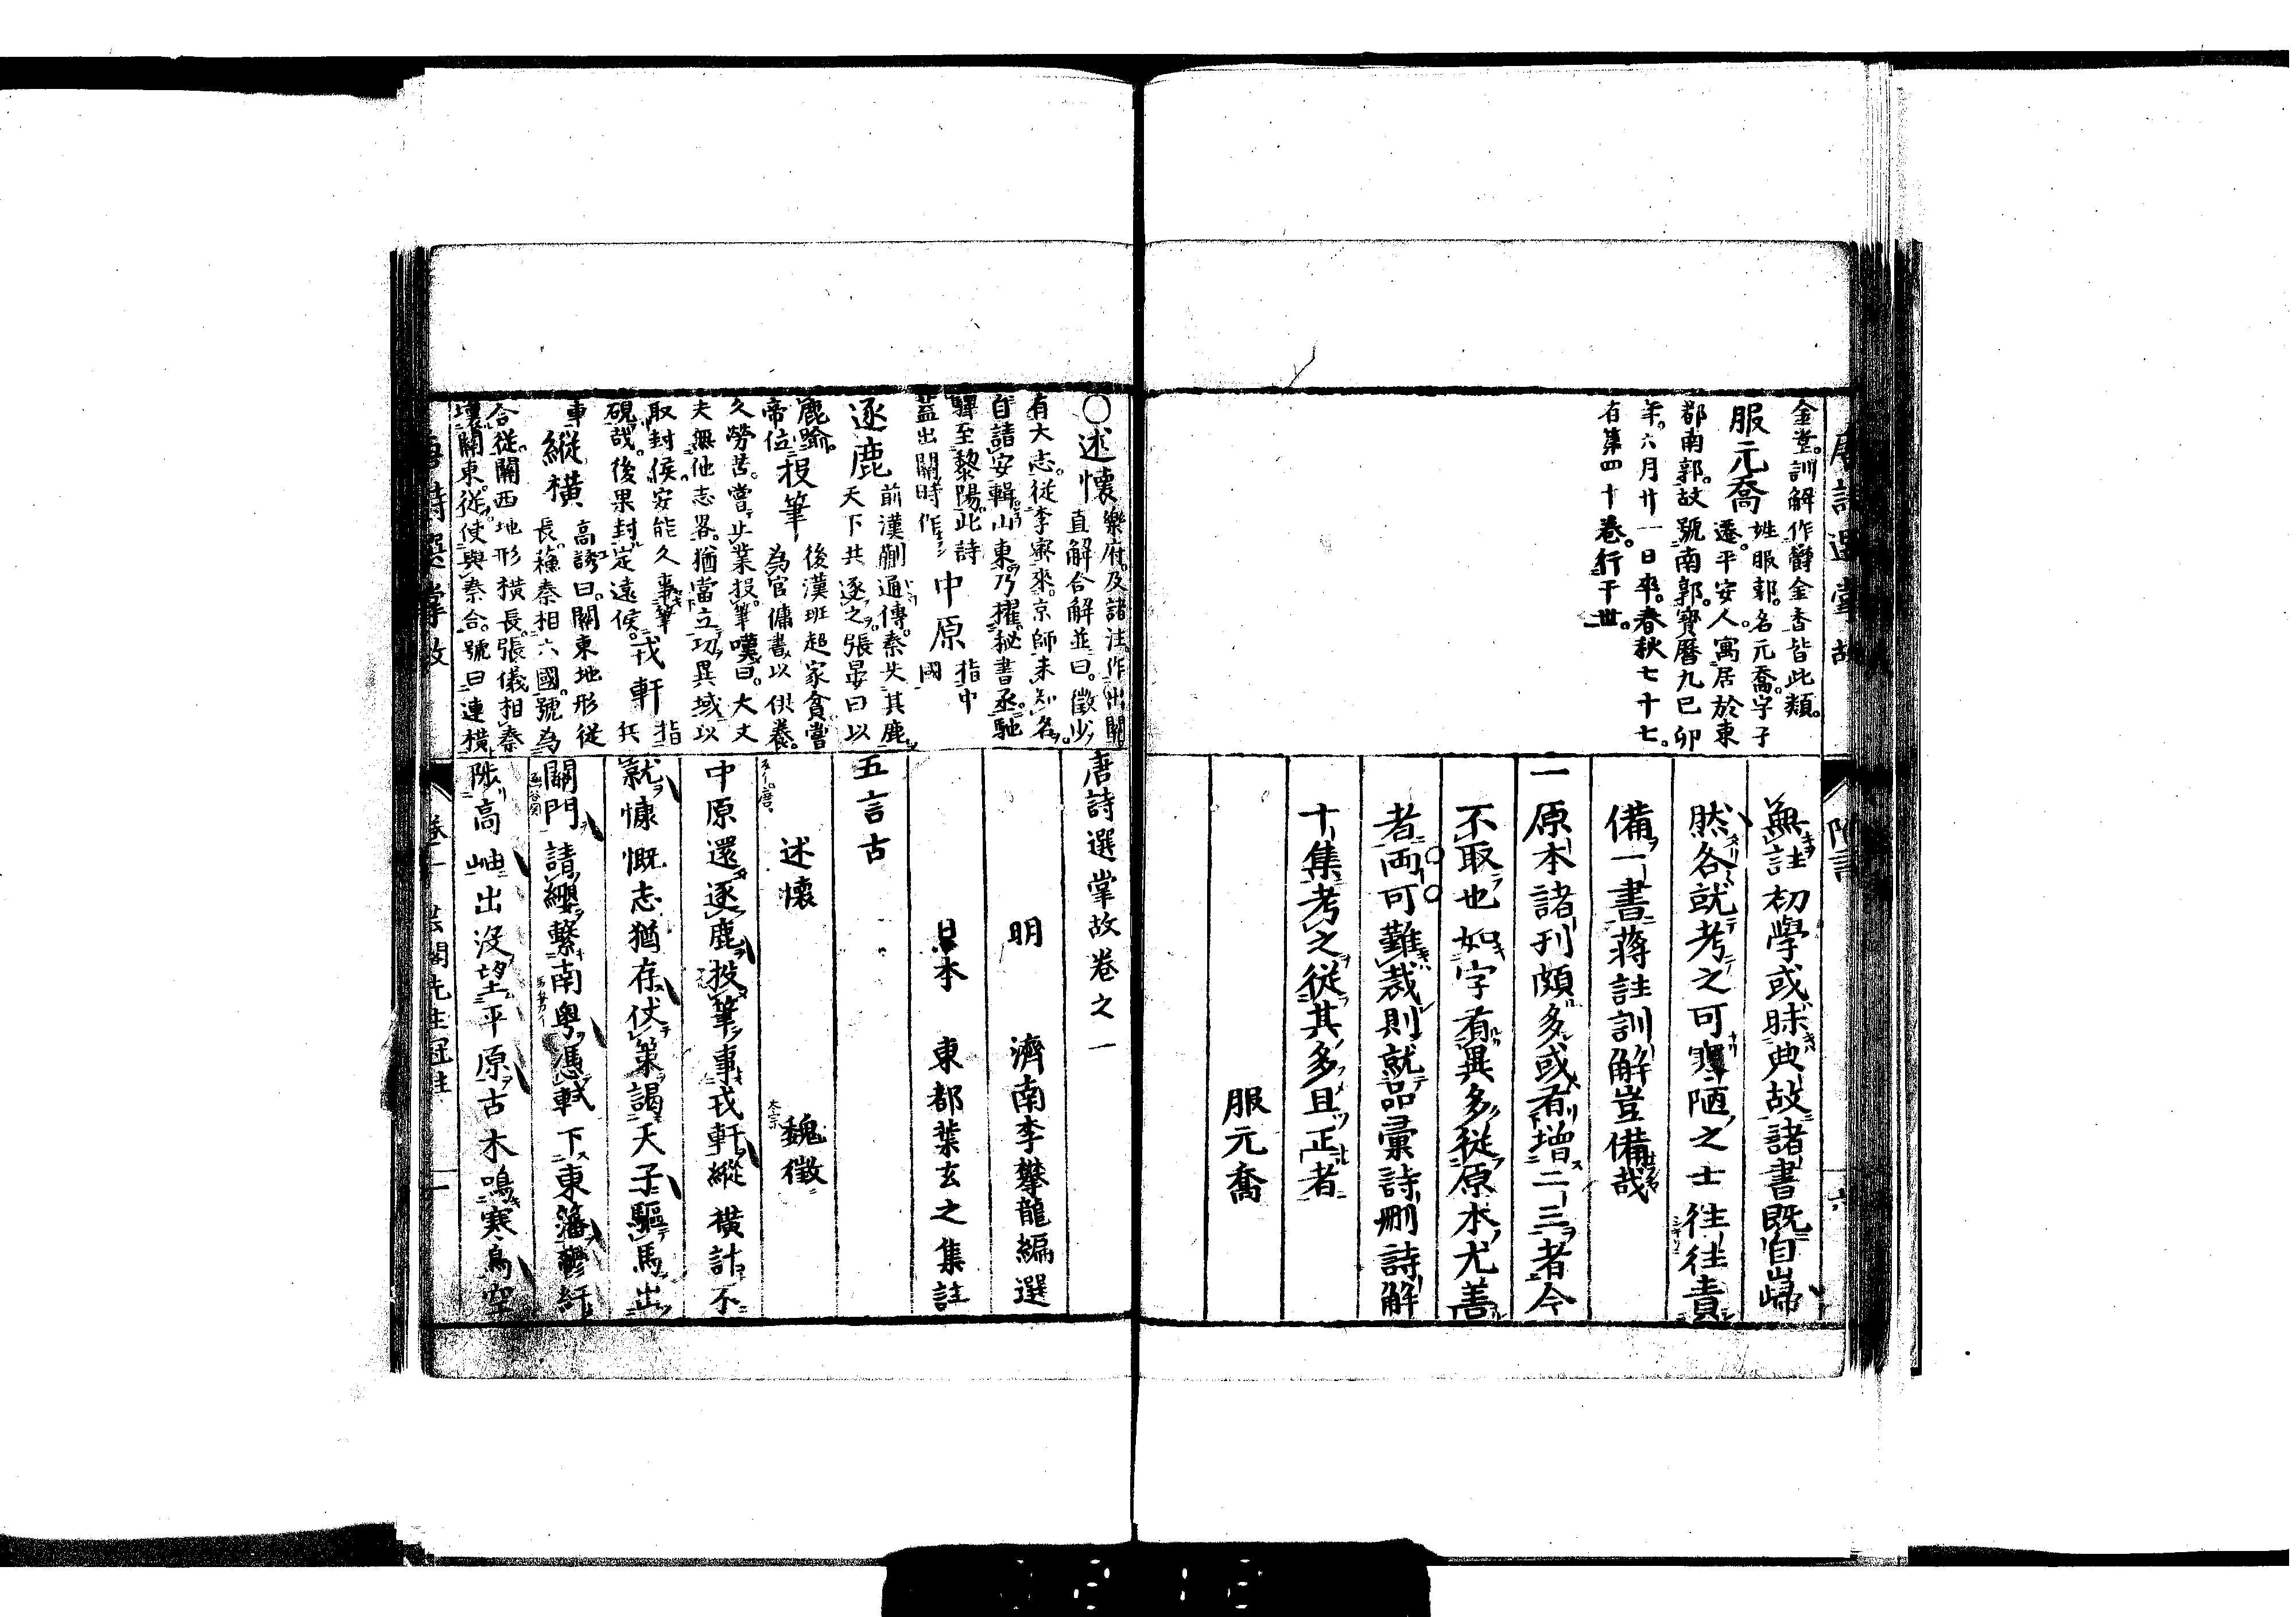 金堂訓解作欝金香皆此類
服元喬
姓服部名元喬字子
遷平安人寓居於東
都南郭故號南郭寶曆九己卯
年六月廿一日卒春秋七十七
有第四十卷行于世
無註初學或眛典故諸書既自歸
然各就考之可寡陋之士往往責
備一書蔣註訓解豈備哉
一原本諸刊頗多或有增二三者今
不取也如字有異多從原本尤善
者両可難裁則就品彙詩刪詩解
十集考之從其多且正者
服元喬
唐詩選掌故
附言
六
○述懷
樂府及諸注作出關
直解合解並曰徵少
有大志從李密來京師未知名
自請安輯山東乃擢秘書丞馳
驛至黎陽此詩
蓋出關時作
中原
指中
國
逐鹿
前漢蒯通傳秦失其鹿
天下共逐之張晏曰以
鹿喻
帝位
投筆
後漢班超家貧嘗
為官傭書以供養
久勞苦嘗止業投筆嘆曰大丈
夫無他志畧猶當立功異域以
取封侯安能久事筆
硯哉後果封定遠侯
戎軒
指
兵
車
縱橫
高誘曰關東地形從
長蘓秦相六國號為
合從關西地形橫長張儀相秦
壞關東從使與秦合號曰連橫
唐詩選掌故卷之一
明　濟南李攀龍編選
日本　東都葉玄之集註
五言古
述懷　魏徵
中原還逐鹿投筆事戎軒縱橫計不
就慷慨志猶存仗策謁天子驅馬出
關門請纓繫南粵憑軾下東藩鬱紆
陟高岫出沒望平原古木鳴寒鳥空
唐詩選掌故
卷一
芸閣先生冠註
一